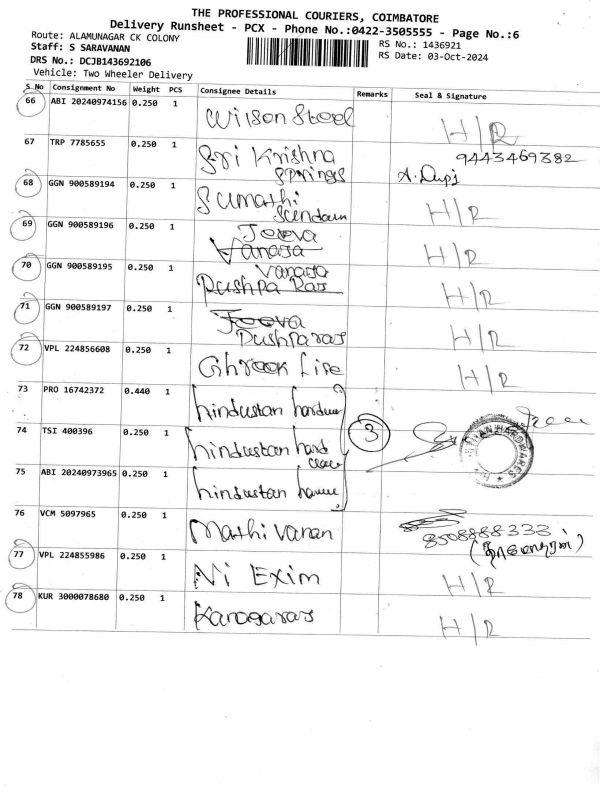 THE PROFESSIONAL COURIERS, COIMBATORE
Delivery Runsheet - PCX - Phone No.:0422-3505555 - Page No.:6
Route: ALAMUNAGAR CK COLONY
RS No.: 1436921
Staff: S SARAVANAN
RS Date: 03-Oct-2024
DRS No.: DCJB143692106
Vehicle: Two Wheeler Delivery
S No Consignment No Weight PCS Consignee Details Remarks Seal & Signature
66 ABI 20240974156 0.250 1 Wilson Steel H/R
67 TRP 7785655 0.250 1 Sri Krishna 9443469382
Springs
68 GGN 900589194 0.250 1 Sumathi H/R
Sundaram
69 GGN 900589196 0.250 1 Jeeva H/R
Vanaja
70 GGN 900589195 0.250 1 Vanaja H/R
Pushpa Raj
71 GGN 900589197 0.250 1 Jeeva H/R
Pushparaj
72 VPL 224856608 0.250 1 Life H/R
73 PRO 16742372 0.440 1 hindustan hardware
74 TSI 400396 0.250 1 hindustan hard 3
ware
75 ABI 20240973965 0.250 1 hindustan
76 VCM 5097965 0.250 1 Mathivanan 8508888333
77 VPL 224855986 0.250 1 Ni Exim H/R
78 KUR 3000078680 0.250 1 Kanagaraj H/R